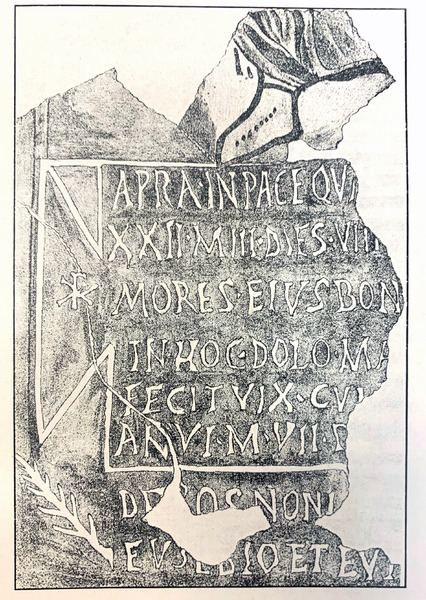 APRA·IN PACE QV
XXII·M·III·DIES·VIII
MORES·EIVS·BON
IN HOC·DOLO MA
FECIT VIX·CV
AN VI·M·VII·
NONI
EVSEBIO ET EV